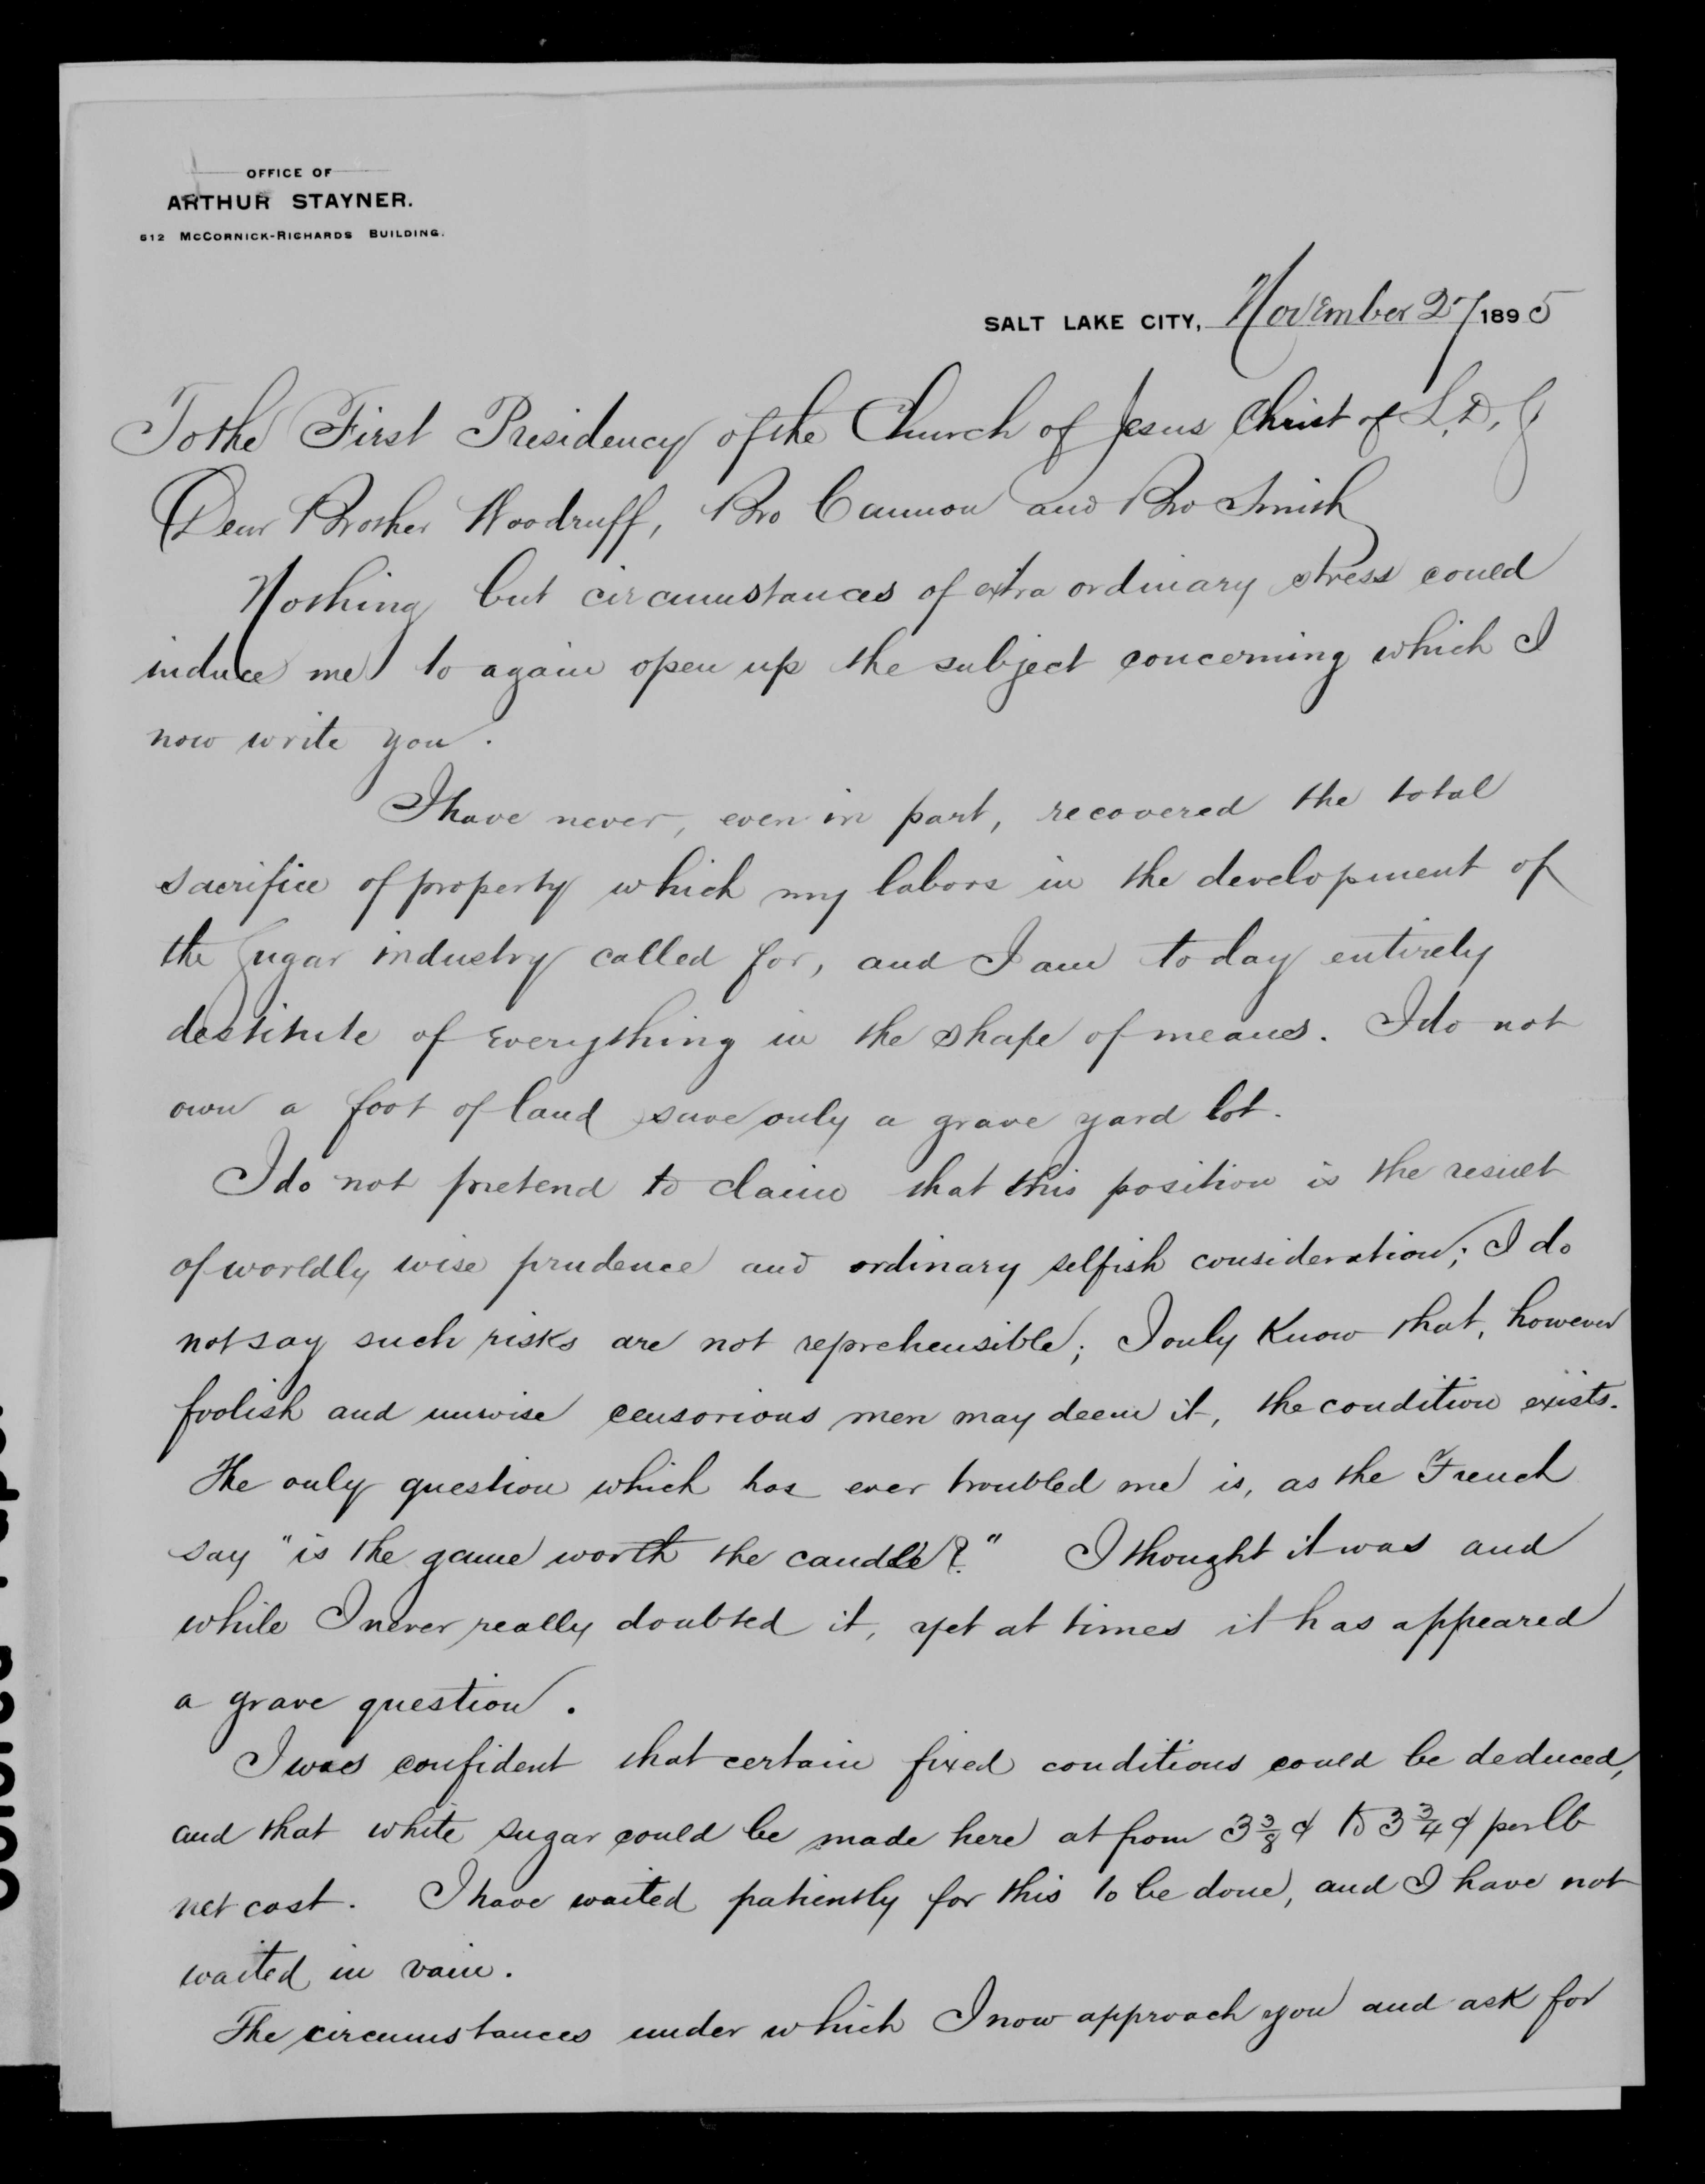 OFFICE OF
ARTHUR STAYNER.
612 McCORNICK-RICHARDS BUILDING.
SALT LAKE CITY, November 27 1895
To the First Presidency of the Church of Jesus Christ of L.D.S
Dear Brother Woodruff, Bro Cannon and Bro Smith
Nothing but circumstances of extra ordinary stress could
induce me to again open up the subject concerning which I
now write you.
I have never, even in part, recovered the total
sacrifice of property which my labors in the development of
the Sugar industry called for, and I am to day entirely
destitute of everything in the shape of means. I do not
own a foot of land save only a grave yard lot.
I do not pretend to claim that this position is the result
of worldly wise prudence and ordinary selfish consideration; I do
not say such risks are not reprehensible; I only know that, however
foolish and unwise censorious men may deem it, the condition exists.
The only question which has ever troubled me is, as the French
say "is the game worth the candle?" I thought it was and
while I never really doubted it, yet at times it has appeared
a grave question.
I was confident that certain fixed conditions could be deduced,
and that white sugar could be made here at from 3 3/8 ¢ to 3 3/4 ¢ per lb
net cost. I have waited patiently for this to be done, and I have not
waited in vain.
The circumstances under which I now approach you and ask for